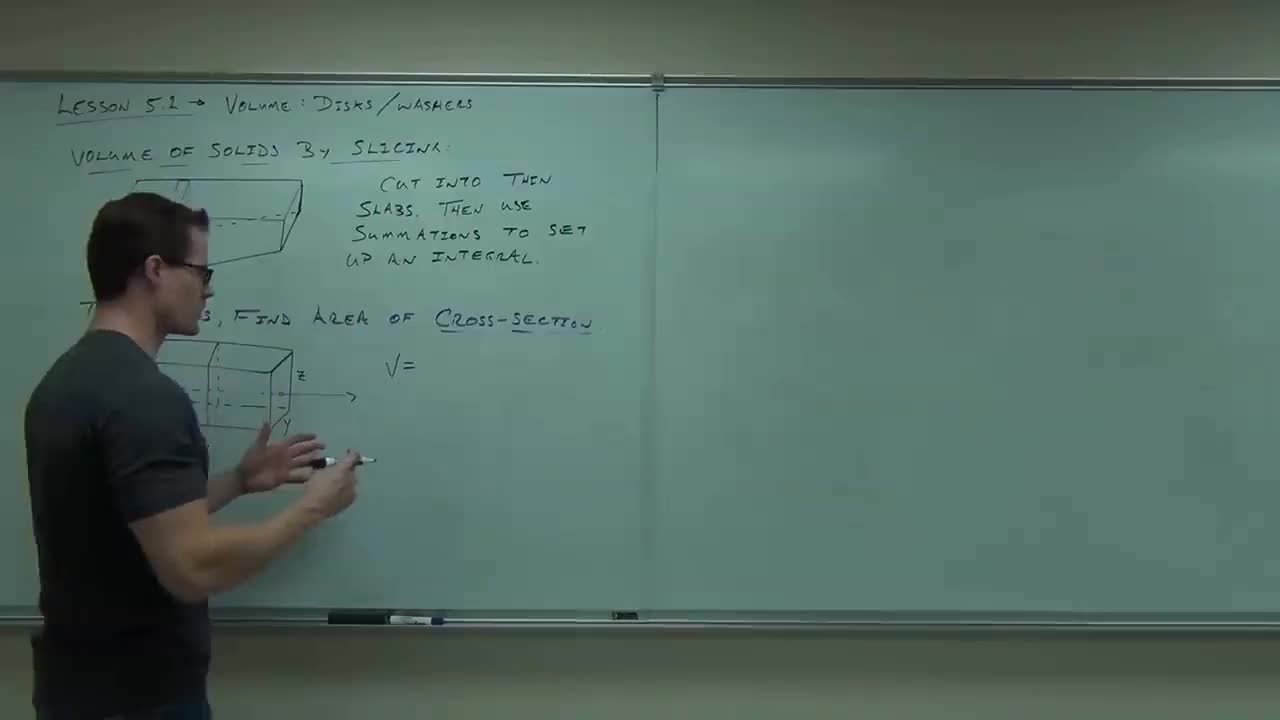 LESSON 5.2 → VOLUME: DISKS/WASHERS
VOLUME OF SOLIDS BY SLICING:
CUT INTO THIN
SLABS. THEN USE
SUMMATIONS TO SET
UP AN INTEGRAL.
FIND AREA OF CROSS-SECTION.
V=
Z
Y